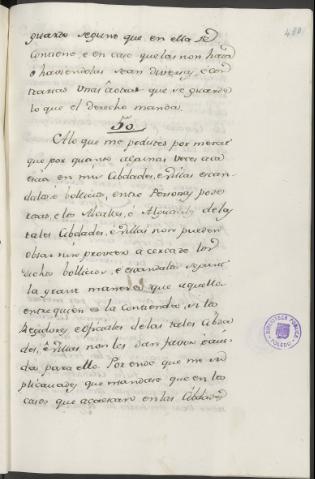 480
guarde segund que en ella se
Contiene, e en caso que las non haya
o haviendolas sean diversas, e con
trarias unas a otras que se guarde
lo que el derecho manda.
50
A lo que me pedistes por merced
que por quanto algunas veces aca
escia en mis Cibdades, e villas escan
dalos e bollicios, entre Personas pode
rosas, e los Alcaldes, e Alguaciles de las
tales Cibdades, e villas non pueden
obrar nin proveer a cerca de los
dichos bollicios, e escandalos segund
la grant manera que aquellos
entre quien es la Contienda, si los
Regidores e oficiales de las tales Cibda
des, e villas non les dan favor e aiu
da para ello. Por ende que me su
plicavades que mandase que en los
casos que acaesciere en las Cibdades
BIBLIOTECA PUBLICA
TOLEDO